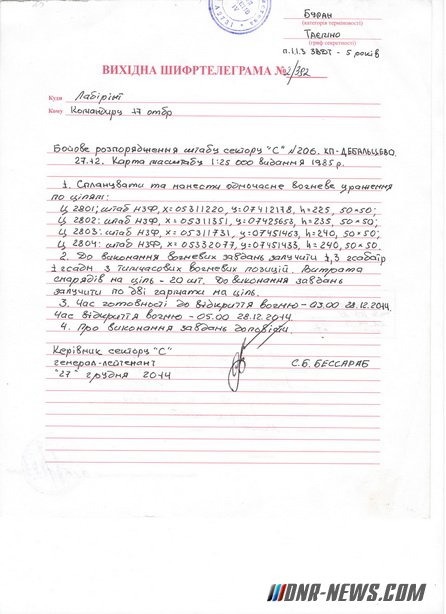 Буран
(категорія терміновості)
Таємно
(гриф секретності)
п.1.1.3 ЗВДТ - 5 років
ВИХІДНА ШИФРТЕЛЕГРАМА №2/392
Куди Лабіринт
Кому Командиру 17 отбр
Бойове розпорядження штабу сектору "С" №206. КП-ДЕБАЛЬЦЕВО.
27.12. Карта масштабу 1:25 000 видання 1985 р.
1. Спланувати та нанести одночасне вогневе ураження
по цілям:
Ц 2801: штаб НЗФ, х=05311220, у=07412178, h=225, 50×50;
Ц 2802: штаб НЗФ, х=05311351, у=07425653, h=235, 50×50;
Ц 2803: штаб НЗФ, х=05311731, у=07451463, h=240, 50×50;
Ц 2804: штаб НЗФ, х=05332077, у=07451433, h=240, 50×50.
2. До виконання вогневих завдань залучити 1,3 гсабатр
1 гсадн з тимчасових вогневих позицій. Витрата
снарядів на ціль - 20 шт. До виконання завдань
залучити по дві гармати на ціль.
3. Час готовності до відкриття вогню - 03.00 28.12.2014.
Час відкриття вогню - 05.00 28.12.2014.
4. Про виконання завдань доповісти.
Керівник сектору "С"
генерал-лейтенант
С.Б. БЕССАРАБ
"27" грудня 2014
DNR-NEWS.COM